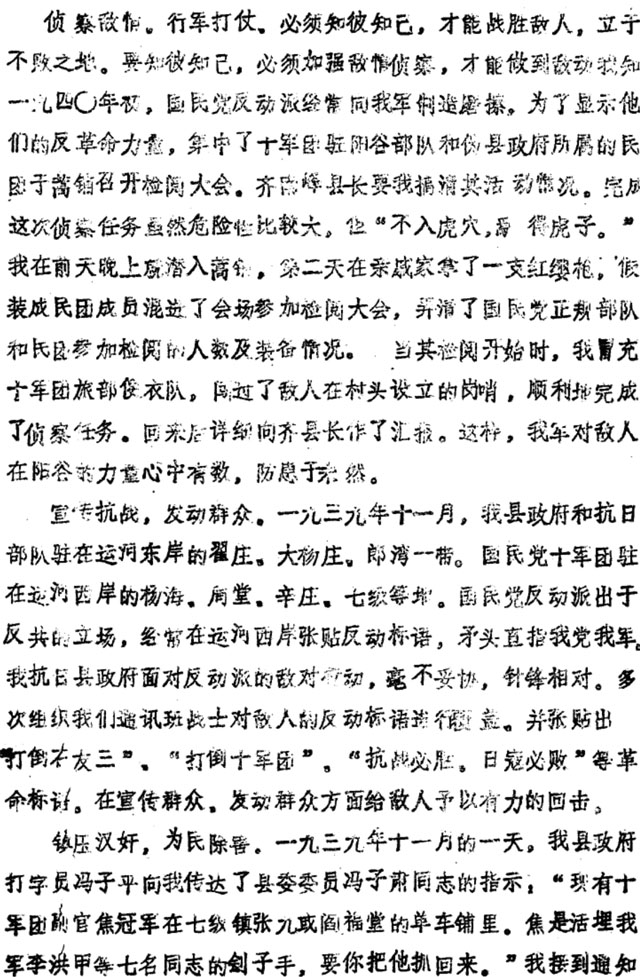 侦察敌情。行军打仗。必须知彼知己，才能战胜敌人，立于
不败之地。要知彼知己，必须加强敌情侦察，才能做到敌动我知
一九四〇年初，国民党反动派经常向我军制造磨擦。为了显示他
们的反革命力量，集中了十军团驻阳谷部队和伪县政府所属的民
团于蒿铺召开检阅大会。齐 峰县长要我搞清其活动情况。完成
这次侦察任务虽然危险性比较大，但“不入虎穴，焉得虎子。”
我在前天晚上就潜入蒿铺，第二天在亲戚家拿了一支红缨枪，假
装成民团成员混进了会场参加检阅大会，弄清了国民党正规部队
和民团参加检阅的人数及装备情况。 当其检阅开始时，我冒充
十军团旅部便衣队，闯过了敌人在村头设立的岗哨，顺利地完成
了侦察任务。回来后详细向齐县长作了汇报。这样，我军对敌人
在阳谷的力量心中有数，防息于未然。
宣传抗战，发动群众。一九三九年十一月，我县政府和抗日
部队驻在运河东岸的翟庄。大杨庄。郎湾一带。国民党十军团驻
在运河西岸的杨海。周堂。辛庄。七级等地。国民党反动派出于
反共的立场，经常在运河西岸张贴反动标语，矛头直指我党我军。
我抗日县政府面对反动派的敌对行动，毫不妥协，针锋相对。多
次组织我们通讯班战士对敌人的反动标语进行覆盖。并张贴出
“打倒石友三”。“打倒十军团”。“抗战必胜。日寇必败”等革
命标语。在宣传群众。发动群众方面给敌人予以有力的回击。
镇压汉奸，为民除害。一九三九年十一月的一天。我县政府
打字员冯子平向我传达了县委委员冯子肃同志的指示：“现有十
军团副官焦冠军在七级镇张九或阎福堂的单车铺里。焦是活埋我
军李洪甲等七名同志的刽子手，要你把他抓回来。”我接到通知